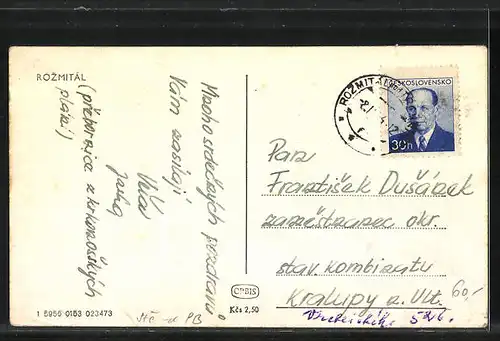 ROŽMITÁL
Mnoho srdečných pozdravů
Vám zasílají
(přeborníce z krkonošských
pláží)
1 5956 0153 023473
ORBIS
Kčs 2,50
ROŽMITÁL
ČESKOSLOVENSKO
30h
Pan
František Dušánek
zaměstnanec okr.
stav. kombinatu
Kralupy n. Vlt.
60,-
526.